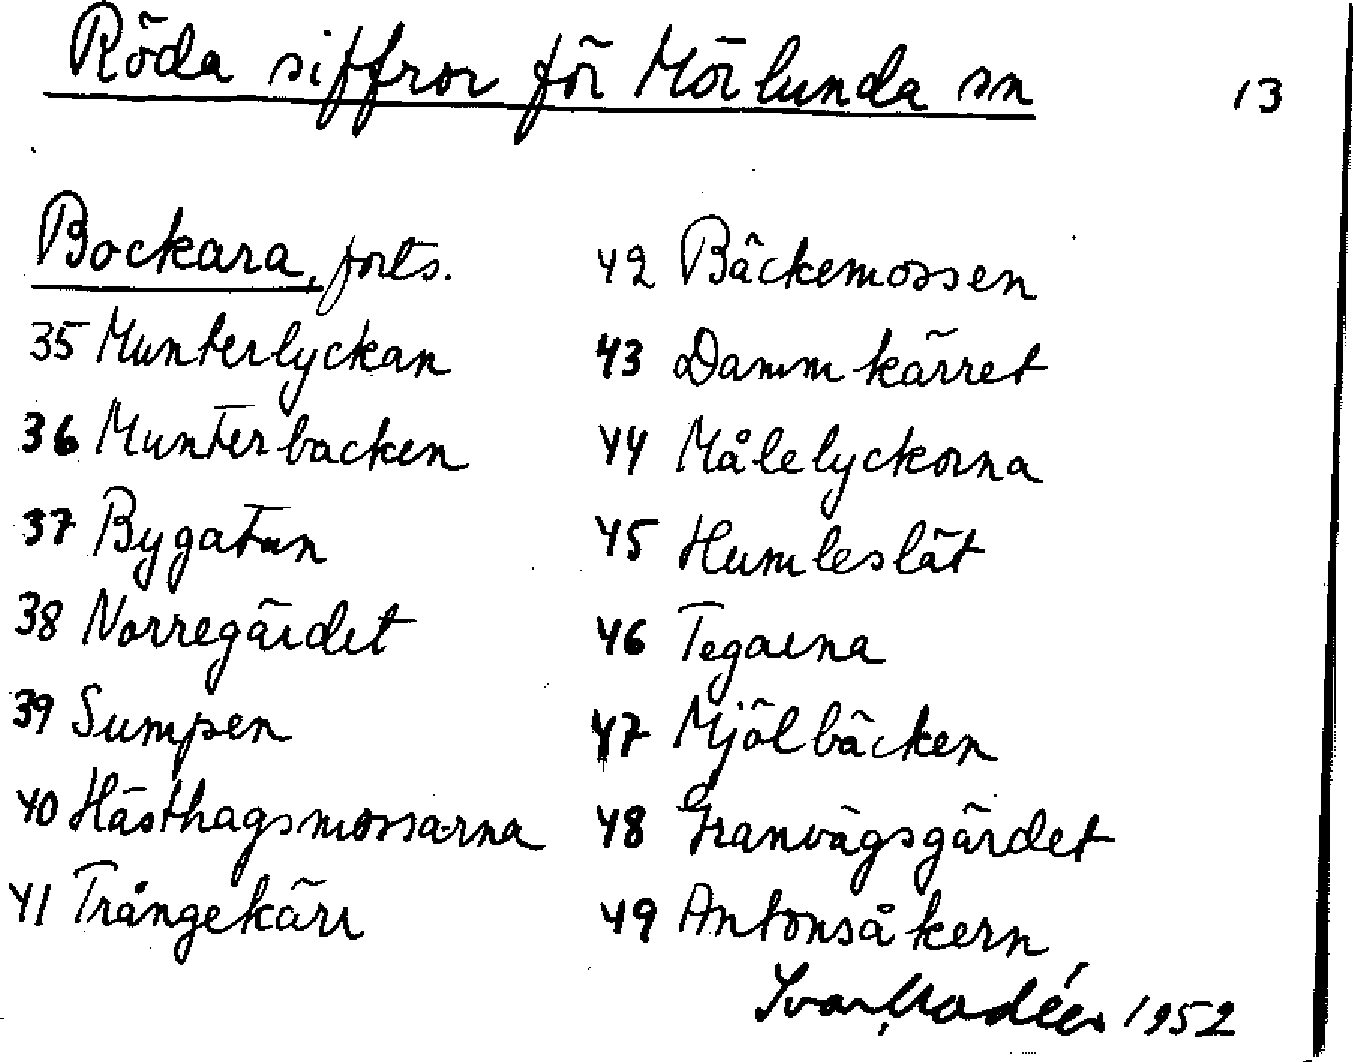 Röda siffror för Mörlunda sn 13
Bockara, forts.
35 Munterlyckan
36 Munterbacken
37 Bygatan
38 Norregärdet
39 Sumpen
40 Hästhagsmossarna
41 Trångekärr
42 Bäckemossen
43 Dammkärret
44 Målelyckorna
45 Humleslät
46 Tegarna
47 Mjölbäcken
48 Franvägsgärdet
49 Antonsåkern
Ivar Modéer 1952